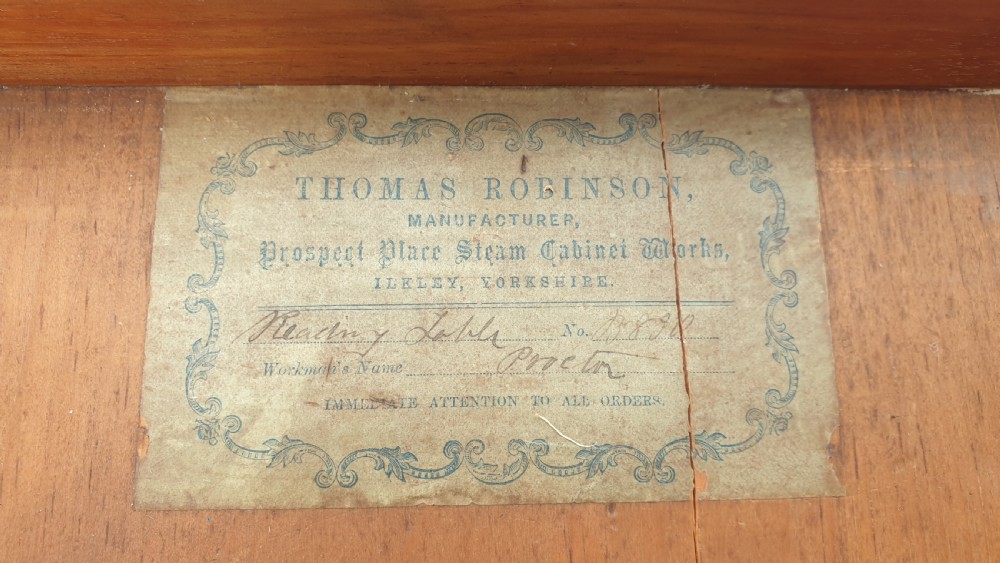 THOMAS ROBINSON,
MANUFACTURER,
Prospect Place Steam Cabinet Works,
ILKLEY, YORKSHIRE.
Reading Table No.
Workman's Name Proctor
IMMEDIATE ATTENTION TO ALL ORDERS.